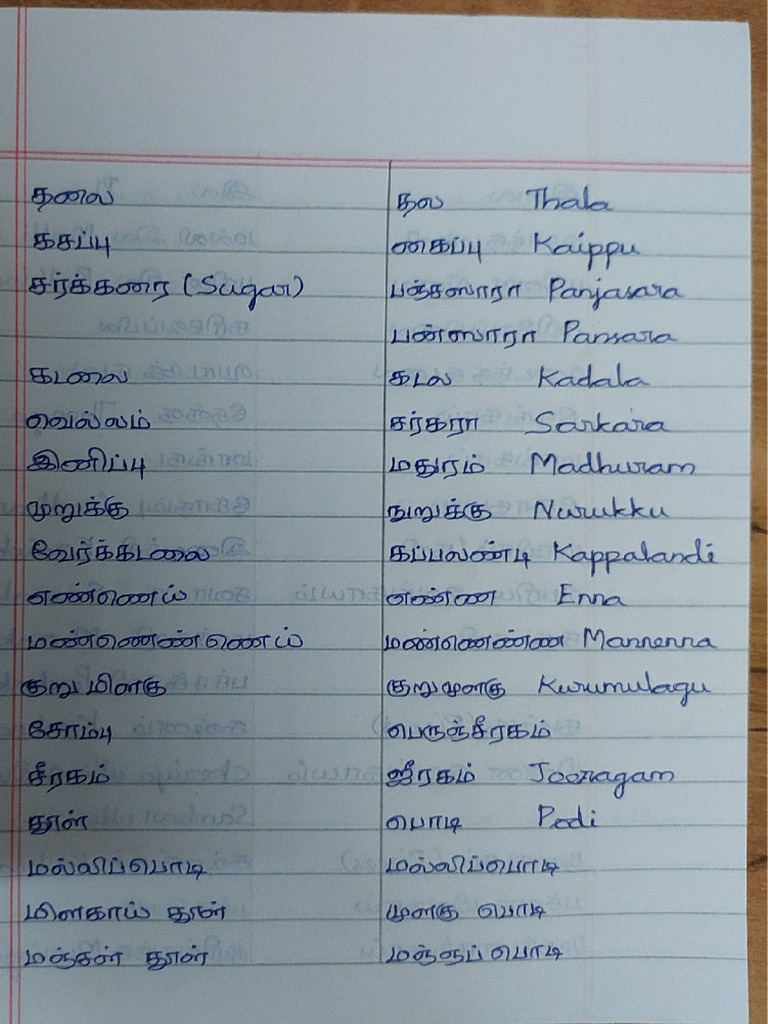 தலை தல Thala
கசப்பு கைப்பு Kaippu
சர்க்கரை (Sugar) பஞ்சஸாரா Panjasara
பன்ஸாரா Pansara
கடலை கடல Kadala
வெல்லம் சர்கரா Sarkara
இனிப்பு மதுரம் Madhuram
முறுக்கு நுறுக்கு Nurukku
வேர்க்கடலை கப்பலண்டி Kappalandi
எண்ணெய் எண்ண Enna
மண்ணெண்ணெய் மண்ணெண்ண Mannenna
குறுமிளகு குறுமுளகு Kurumulagu
சோம்பு பெருஞ்சீரகம்
சீரகம் ஜீரகம் Jeeragam
தூள் பொடி Podi
மல்லிப்பொடி மல்லிப்பொடி
மிளகாய் தூள் முளகு பொடி
மஞ்சள் தூள் மஞ்ஞப் பொடி